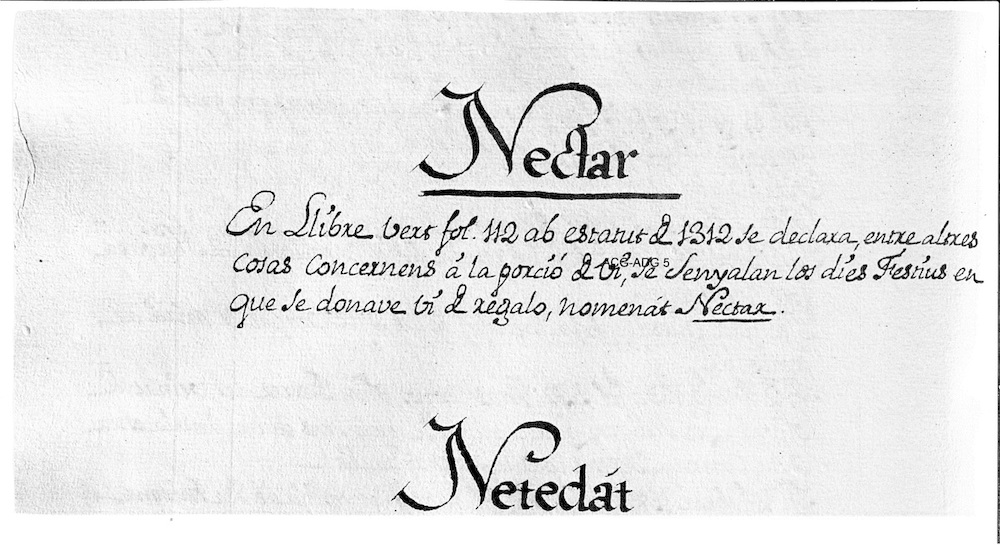 Nectar
En Llibre vert fol. 112 ab estatut d 1312 se declara, entre altres
Cosas Concernens á la porció d vi, se Senyalan los díes Festíus en
que se donave vi d regalo, nomenát Nectar.
ACG-ADG 5
Netedát